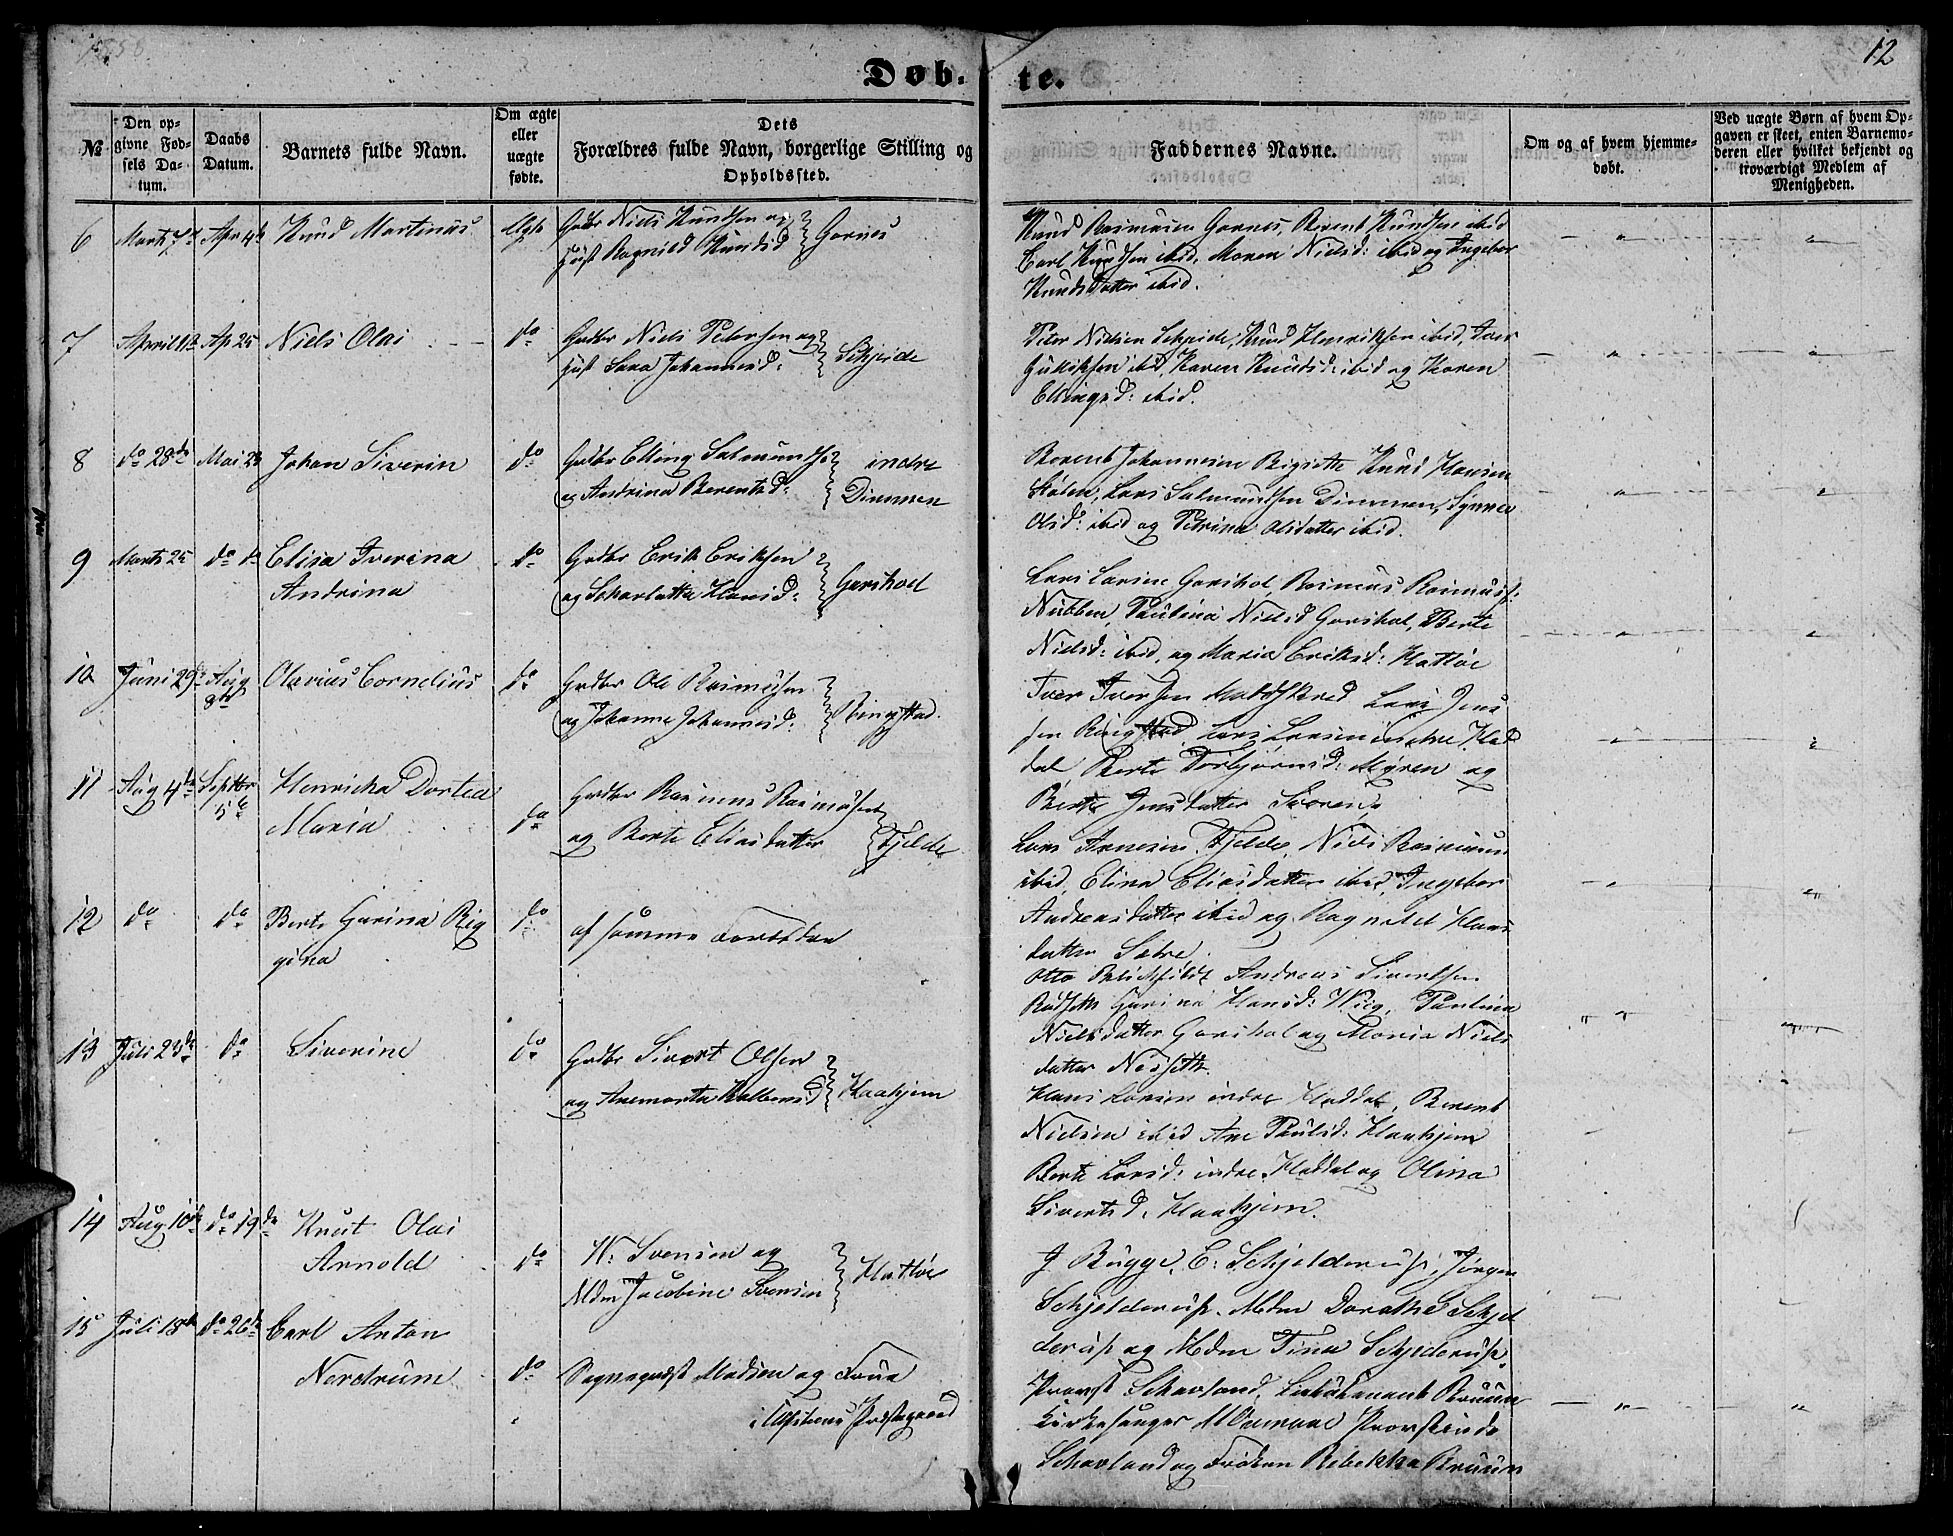 1858
12
Døb-
te.
№
Den op-
givne Fød-
sels Da-
tum.
Daabs
Datum.
Barnets fulde Navn.
Om ægte
eller
uægte
fødte.
Dets
Forældres fulde Navn, borgerlige Stilling og
Opholdssted.
Faddernes Navne.
Om og af hvem hjemme-
døbt.
Ved uægte Børn af hvem Op-
gaven er skeet, enten Barnemo-
deren eller hvilket bekjendt og
troværdigt Medlem af
Menigheden.
6 Marts 7de Apr 4de Knud Martinus Ægte
Gdbr Niels Knudsen og
Hust Ragnild Knudsd
Garnes
Knud Rasmusen Garnes, Berent Knudsen ibid
Carl Knudsen ibid, Maren Nielsd: ibid og Ingebor
Knudsdatter ibid.
7 April Ap 25 Niels Olai do
Gdbr Niels Pedersen og
Hust Sara Johannesd:
Schjeide
Peter Nielsen Schjeide, Knud Henriksen ibid, Iver
ibid, Karen Knudsd: ibid og Karen
Ellingsd: ibid.
8 do 28de Mai 23 Johan Siverin do
Gdbr Elling Salmunds
og Andrina Berentsd:
indre
Dimmen
Berent Johannesen Rigsette Knud Hansen
Lars Salmundsen Dimmen, Synnev
Olsd: ibid og Petrina Olsdatter ibid.
9 Marts 25 do do Elisa Iverina
Andrina
do
Gdbr Erik Eriksen
og Scharlotta Hansd:
Garshol
Lars Larsen Garshol, Rasmus Rasmuss:
Nubben, Paulina Nielsd Garshol, Berte
Nielsd: ibid, og Maria Eriksd: Hatløe
10 Juni 29de Aug
8de
Olavius Cornelius do
Gdbr Ole Rasmusen
og Johanne Johannesd:
Ringstad.
Iver Iversen Lars Jens
sen Ringstad, Lars Larsen indre Had
dal, Berte Torbjørnsd: Myren og
Berte Jensdatter
11 Aug 4de Septbr
5te
Henricka Dortea
Maria
do
Gdbr Rasmus Rasmusen
og Berte Eliasdatter
Fjelde
Lars Arnesen Fjelde, Niels Rasmusen
ibid, Elina Eliasdatter ibid, Ingebor
Andreasdatter ibid og Ragnild Hans
datter Sætre
12 do do Berte Garina Rig
gina
do
af samme Forældre
Otto Andreas Sivertsen
Garina Hansd: Wiig, Paulina
Nielsdatter Garshol og Maria Niels
datter Nessett.
13 Juli 23de do Siverine do
Gdbr Sivert Olsen
og Anemarta
Haahjem
Hans Larsen indre Haddal, Berent
Nielsen ibid Ane Paulsd: Haahjem
Berte Larsd: indre Haddal og Olina
Sivertsd. Haahjem.
14 Aug 10de do 19de Knut Olai
Arnold
do
W. Svensen og
Mdm Jacobine Svensen
Hatløe
J Bugge, E: Schjelderup, Jørgen
Schjelderup, Mdm Dorothe Schjel
derup og Mdm Tina Schjelderup.
15 Juli 18de do 26de Carl Anton
Nordrum
do
Sognepræst Madsen og Frue
i Ulfsteens Præstegaard
Provst Schavland, Leitenant Bruun
Kirkesanger Provstinde
Schavland og Frøken Rebekka Bruun